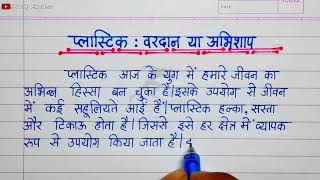 प्लास्टिक : वरदान या अभिशाप
प्लास्टिक आज के युग में हमारे जीवन का
अभिन्न हिस्सा बन चुका है। इसके उपयोग से जीवन
में कई सहूलियतें आई हैं। प्लास्टिक हल्का, सस्ता
और टिकाऊ होता है। जिससे इसे हर क्षेत्र में व्यापक
रूप से उपयोग किया जाता है।